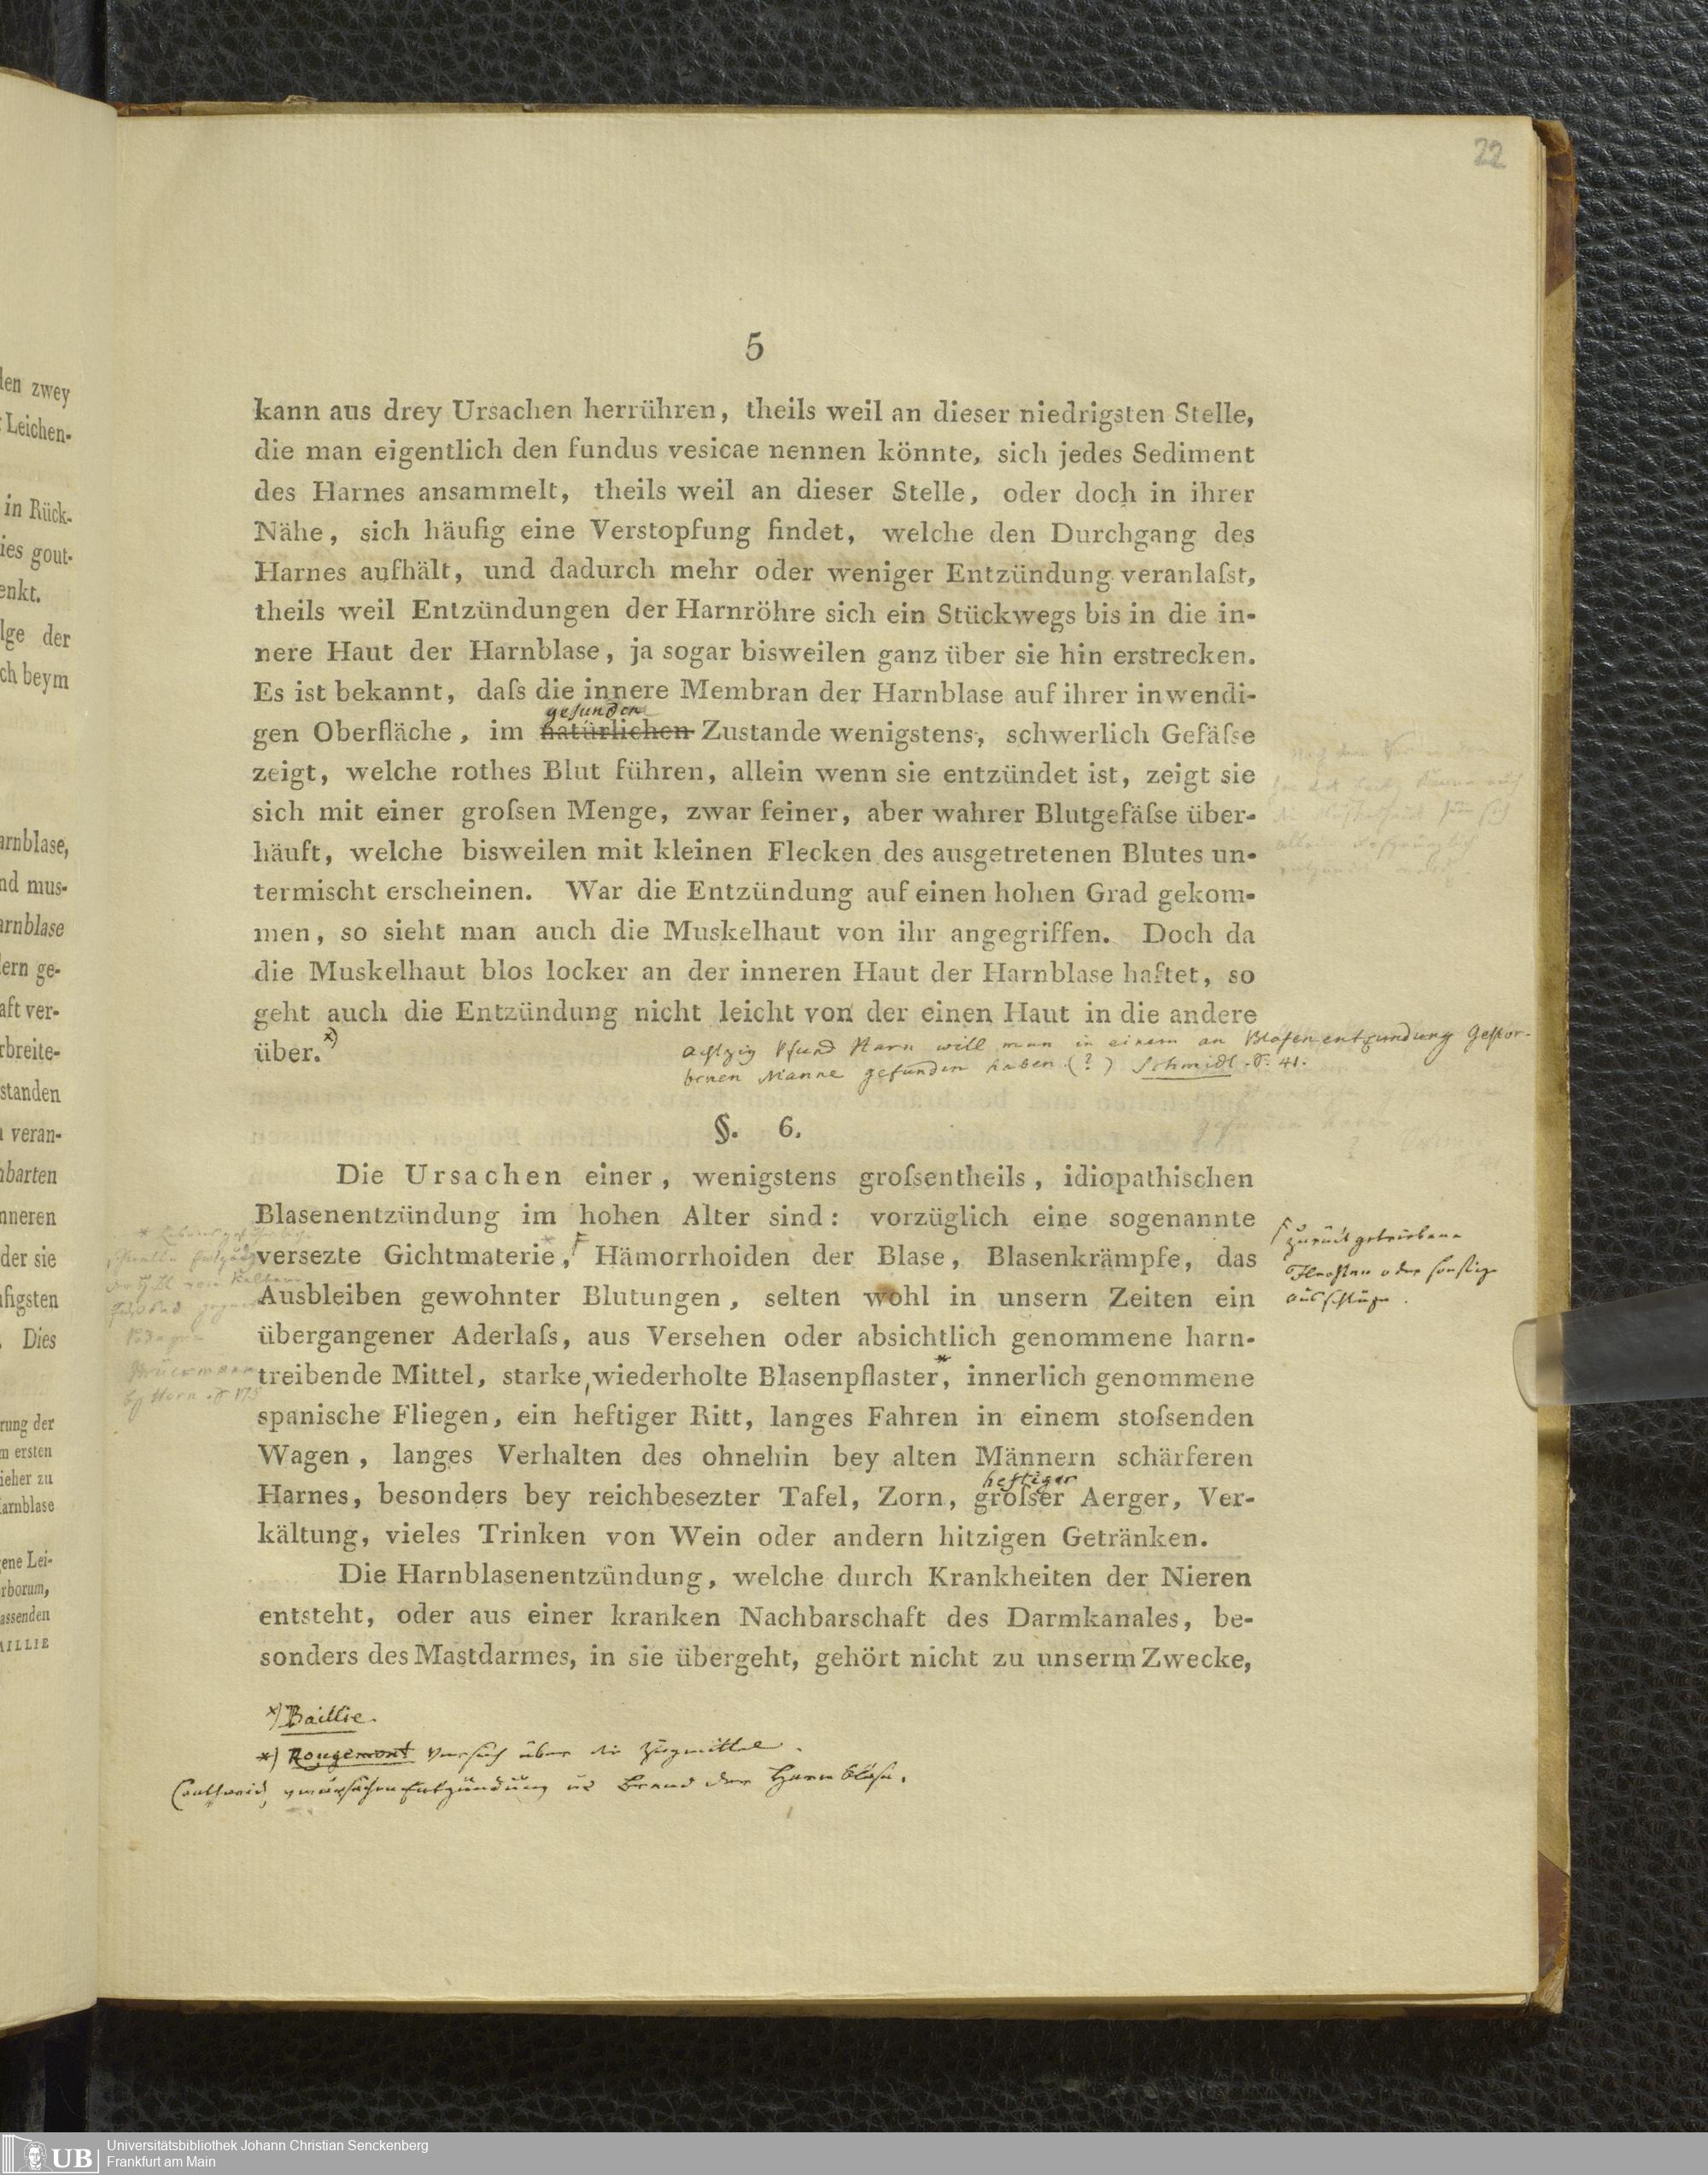 22
5
kann aus drey Ursachen herrühren, theils weil an dieser niedrigsten Stelle,
die man eigentlich den fundus vesicae nennen könnte, sich jedes Sediment
des Harnes ansammelt, theils weil an dieser Stelle, oder doch in ihrer
Nähe, sich häufig eine Verstopfung findet, welche den Durchgang des
Harnes aufhält, und dadurch mehr oder weniger Entzündung veranlaſst,
theils weil Entzündungen der Harnröhre sich ein Stückwegs bis in die in-
nere Haut der Harnblase, ja sogar bisweilen ganz über sie hin erstrecken.
Es ist bekannt, daſs die innere Membran der Harnblase auf ihrer inwendi-
gesunden
gen Oberfläche, im natürlichen Zustande wenigstens, schwerlich Gefäſse
zeigt, welche rothes Blut führen, allein wenn sie entzündet ist, zeigt sie
sich mit einer groſsen Menge, zwar feiner, aber wahrer Blutgefäſse über-
häuft, welche bisweilen mit kleinen Flecken des ausgetretenen Blutes un-
termischt erscheinen. War die Entzündung auf einen hohen Grad gekom-
men, so sieht man auch die Muskelhaut von ihr angegriffen. Doch da
die Muskelhaut blos locker an der inneren Haut der Harnblase haftet, so
geht auch die Entzündung nicht leicht von der einen Haut in die andere
über. *)
achtzig Pfund Harn will man in einem an Blasenentzündung Gestor-
benen Manne gefunden haben (?) Schmidt S. 41.
§. 6.
Die Ursachen einer, wenigstens groſsentheils, idiopathischen
Blasenentzündung im hohen Alter sind: vorzüglich eine sogenannte
versezte Gichtmaterie, Hämorrhoiden der Blase, Blasenkrämpfe, das
Ausbleiben gewohnter Blutungen, selten wohl in unsern Zeiten ein
übergangener Aderlaſs, aus Versehen oder absichtlich genommene harn-
treibende Mittel, starke, wiederholte Blasenpflaster*, innerlich genommene
spanische Fliegen, ein heftiger Ritt, langes Fahren in einem stoſsenden
Wagen, langes Verhalten des ohnehin bey alten Männern schärferen
heftiger
Harnes, besonders bey reichbesezter Tafel, Zorn, groſser Aerger, Ver-
kältung, vieles Trinken von Wein oder andern hitzigen Getränken.
Die Harnblasenentzündung, welche durch Krankheiten der Nieren
entsteht, oder aus einer kranken Nachbarschaft des Darmkanales, be-
sonders des Mastdarmes, in sie übergeht, gehört nicht zu unserm Zwecke,
zurückgetriebene
Flechten oder sonstige
Ausschläge.
*) Baillie.
*) Rougemont Versuch über die Zugmittel.
Entzündung u Brand der Harnblase.
den zwey
Leichen-
in Rück-
ies gout-
enkt.
lge der
ch beym
arnblase,
nd mus-
arnblase
lern ge-
aft ver-
rbreite-
standen
veran-
nbarten
nneren
der sie
ufigsten
Dies
rung der
m ersten
ieher zu
Harnblase
gene Lei-
rborum,
assenden
AILLIE
UB
Universitätsbibliothek Johann Christian Senckenberg
Frankfurt am Main